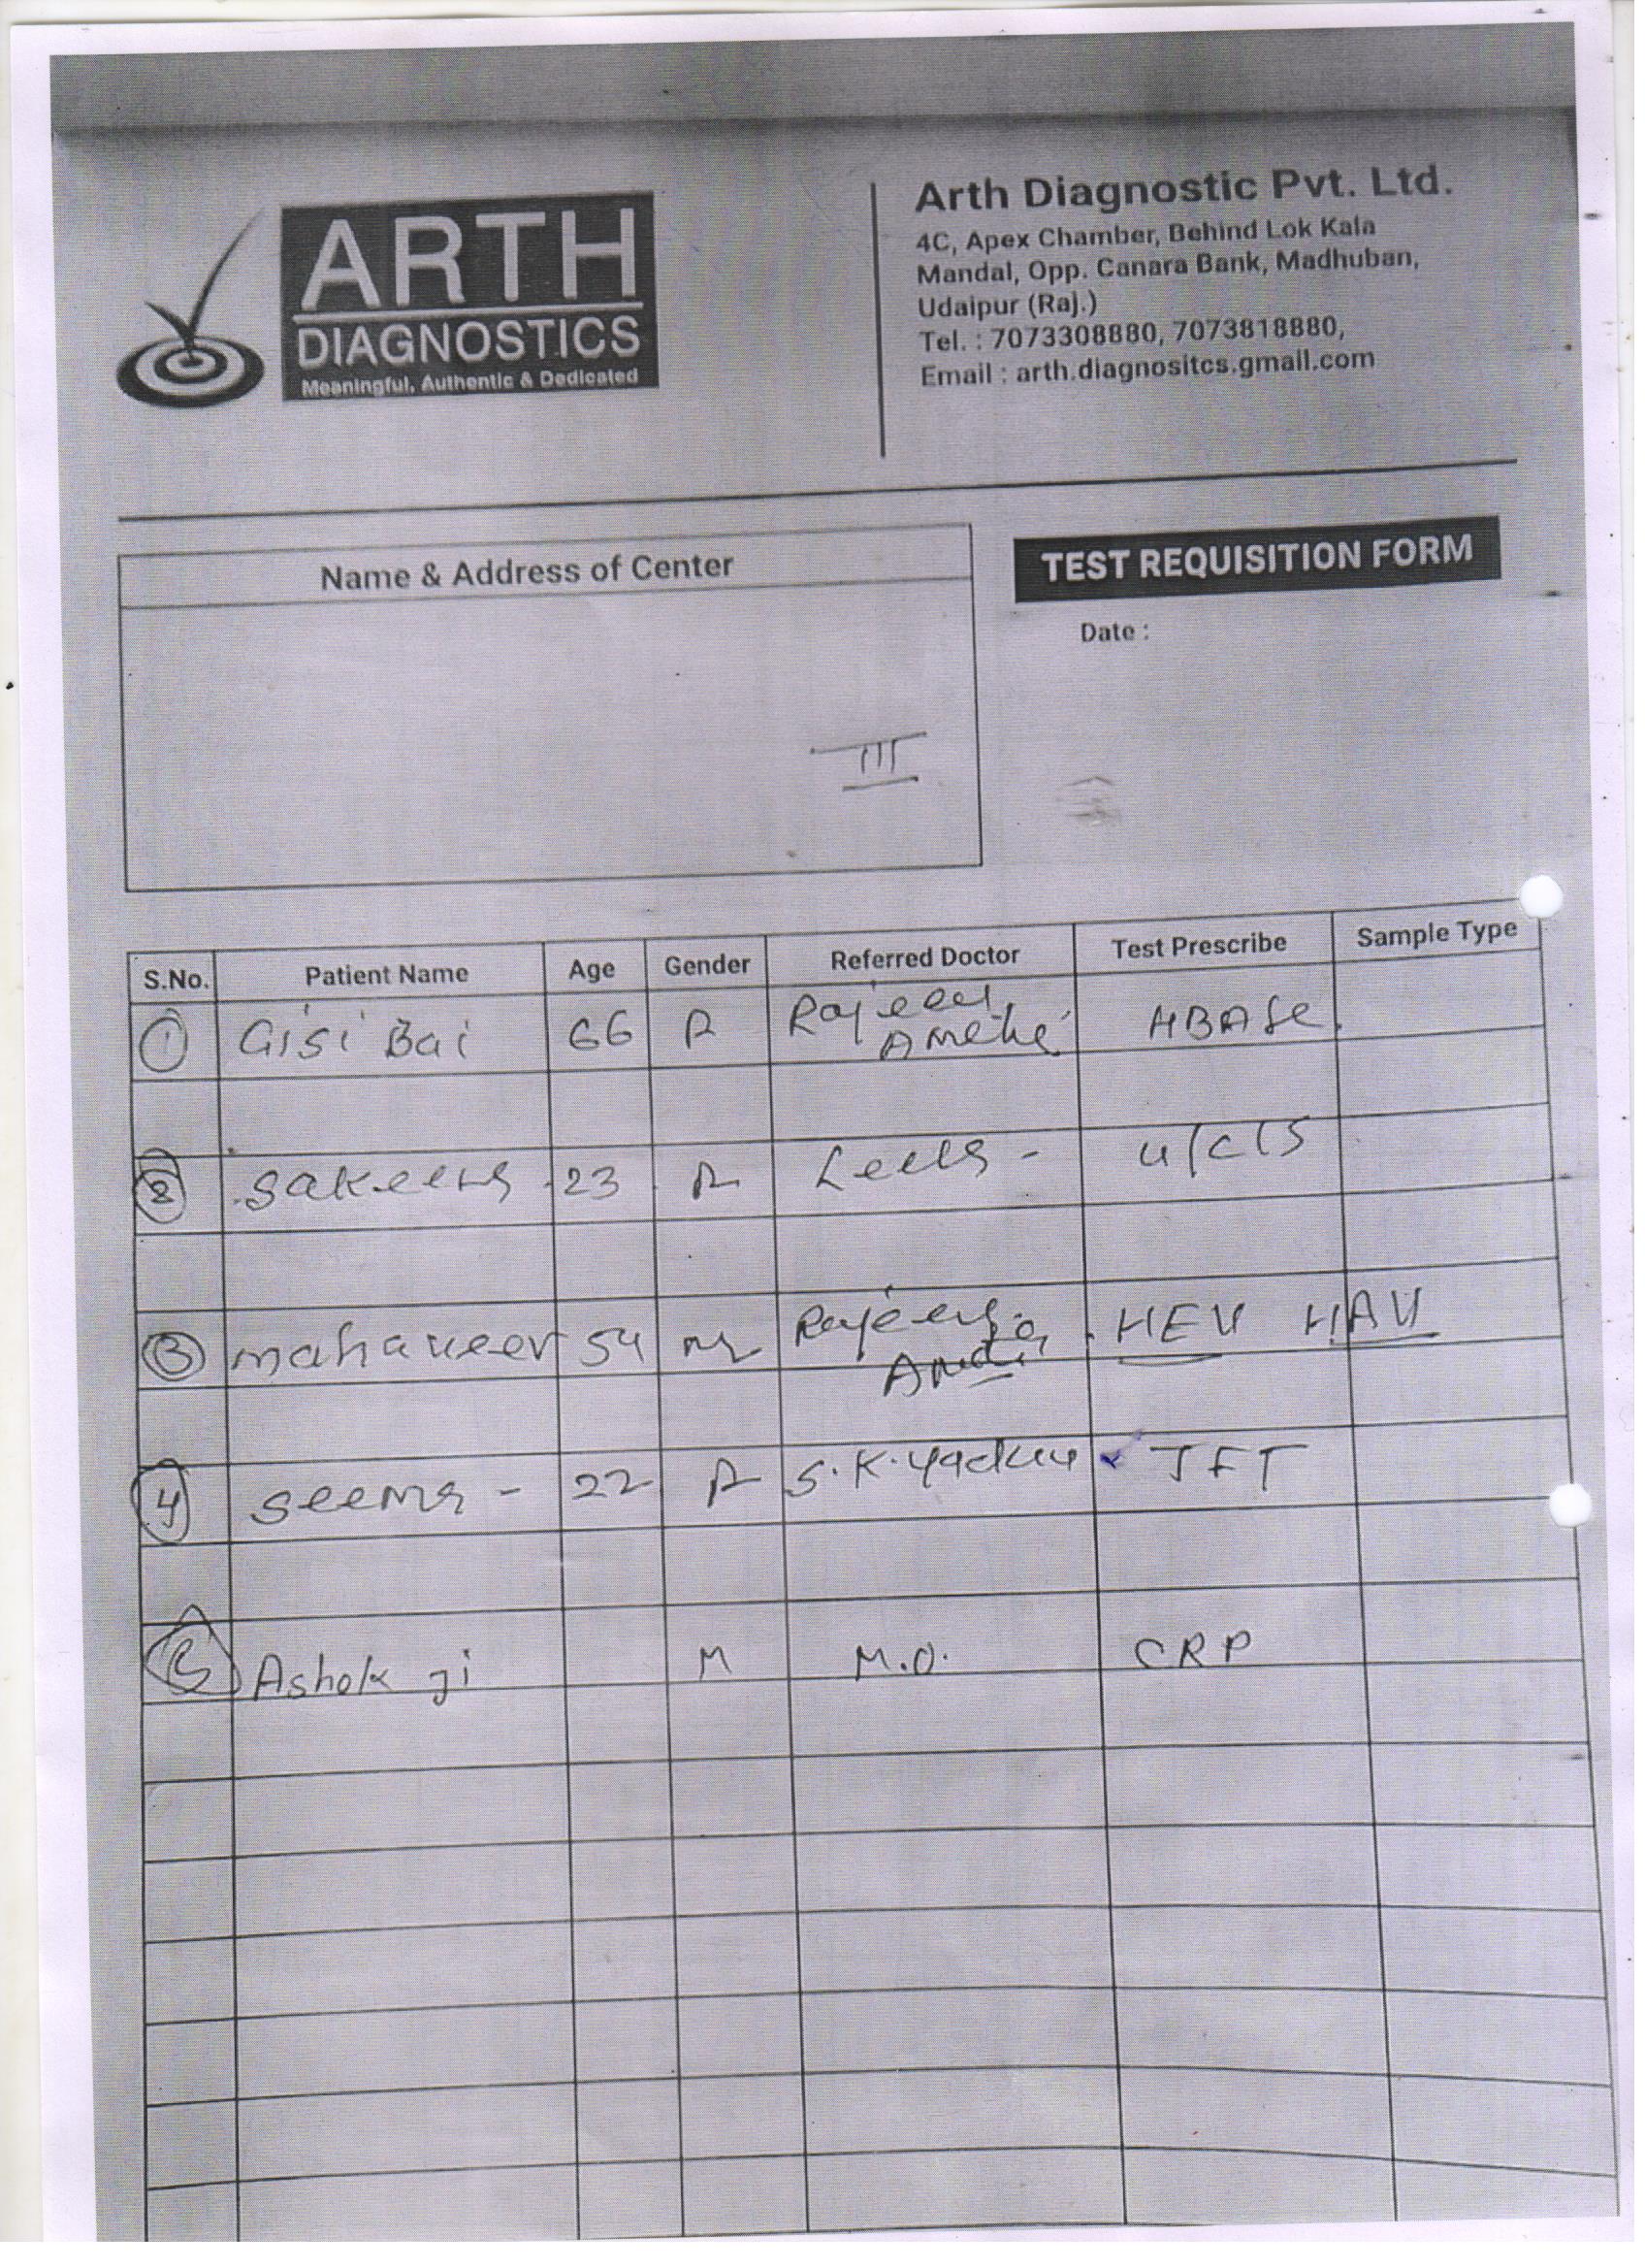 ARTH
DIAGNOSTICS
Meaningful, Authentic & Dedicated
Arth Diagnostic Pvt. Ltd.
4C, Apex Chamber, Behind Lok Kala
Mandal, Opp. Canara Bank, Madhuban,
Udaipur (Raj.)
Tel. : 7073308880, 7073818880,
Email : arth.diagnositcs.gmail.com
Name & Address of Center
III
TEST REQUISITION FORM
Date :
S.No. Patient Name Age Gender Referred Doctor Test Prescribe Sample Type
1 Gisi Bai 66
2 23 u/c/s
3 mahaveer 54 m HEV HAV
4 seema - 22 S.K. TFT
5 Ashok ji M M.O. CRP